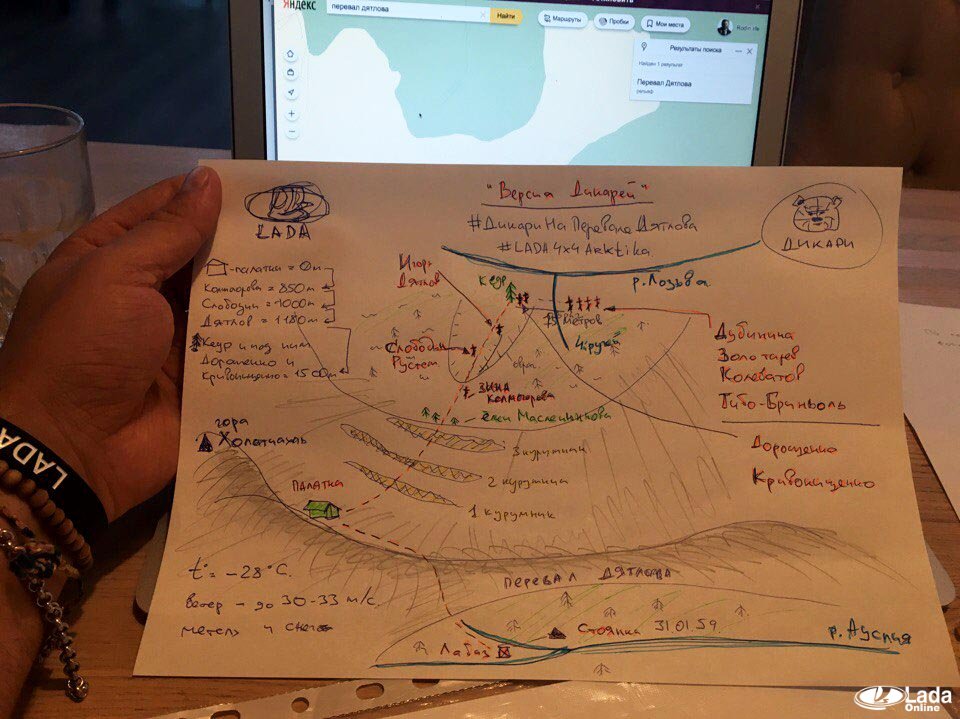 Яндекс
перевал дятлова
Найти
Маршруты
Пробки
Мои места
Результаты поиска
Найден 1 результат
Перевал Дятлова
рельеф
LADA
"Версия Дикарей"
#ДикариНаПеревалеДятлова
#LADA4x4Arktika
ДИКАРИ
-палатки = 0м
Колмогорова = 850м
Слободин = 1000м
Дятлов = 1180м
Кедр и под ним
Дорошенко и
Кривонищенко = 1500м
Игорь
Дятлов
кедр
р. Лозьва
метров
4 ручей
Слободин
Рустем
овраг
ЗИНА
Колмогорова
елки Масленникова
3 курумник
2 курумника
1 курумник
Дубинина
Золотарев
Колеватов
Тибо-Бриньоль
Дорошенко
Кривонищенко
гора
Холатчахль
ПАЛАТКА
t° = -28°С.
Ветер - до 30-33 м/с.
метель и снег
ПЕРЕВАЛ ДЯТЛОВА
Стоянка 31.01.59
Лабаз
р. Ауспия
LADA
Lada
Online